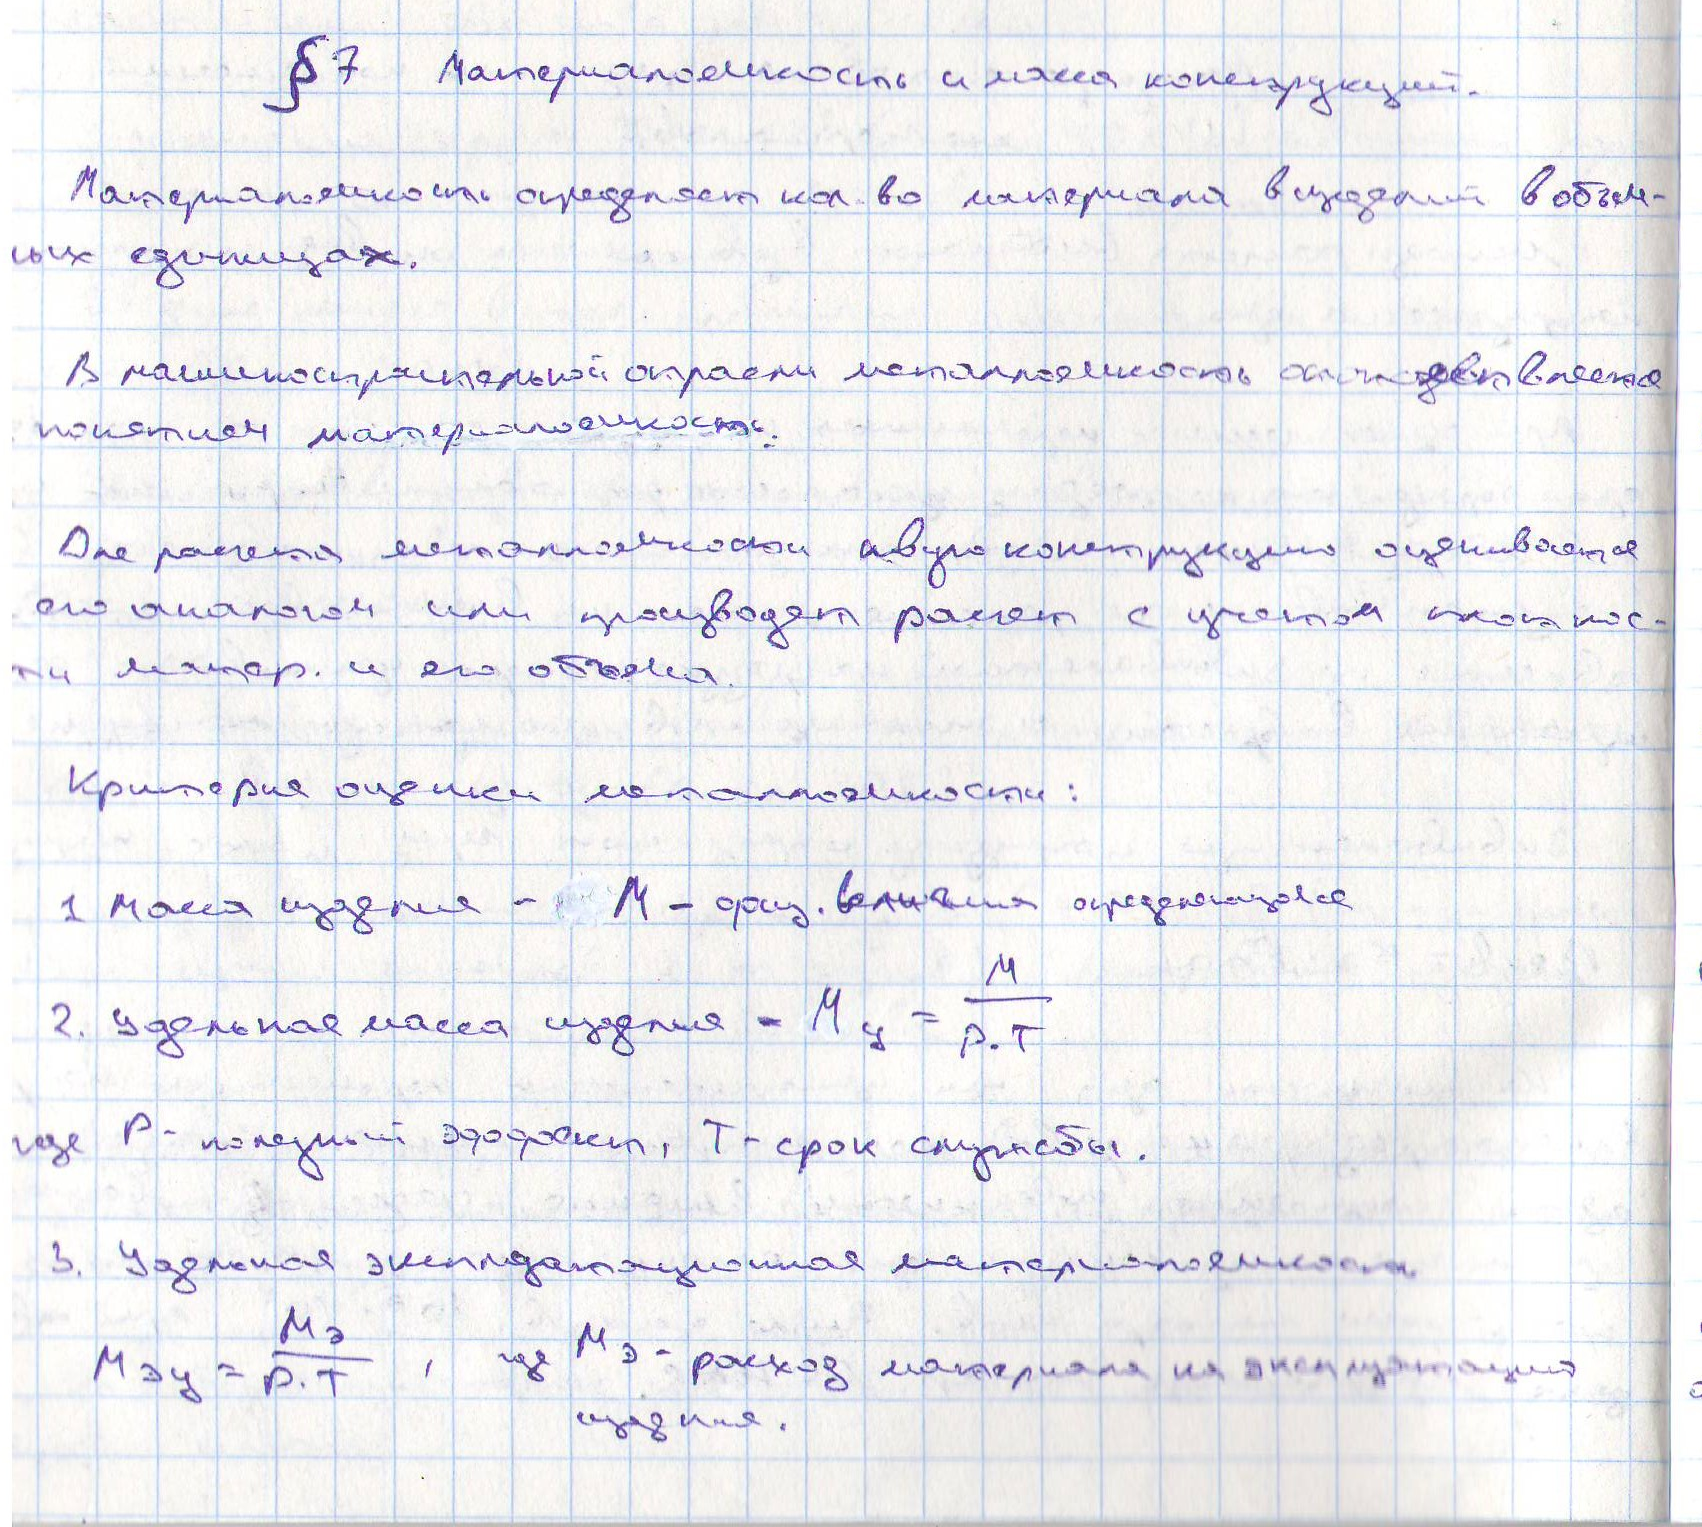 § 7 Материалоемкость и масса конструкций.
Материалоемкость определяет кол-во материала в изделии в объем-
ных единицах.
В машиностроительной отрасли металлоемкость
понятием материалоемкость.
Для расчета металлоемкости конструкцию оценивается
его аналогом или производят расчет с учетом плотнос-
ти матер. и его объема.
Критерия оценки металлоемкости:
1 Масса изделия - М - физ. величина определяющаяся
2. Удельная масса изделия - Му = М / Р.Т
где Р - полезный эффект, Т - срок службы.
3. Удельная эксплуатационная материалоемкость
Мэу = Мэ / Р.Т , где Мэ - расход материала на эксплуатацию
изделия.